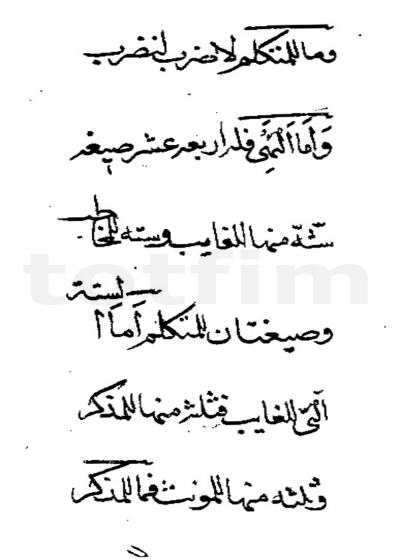 وما للمتكلم لا نضرب لنضرب
واما النهى فله اربعه عشر صيغه
ستّة منها للغايب وسته للمخاطب
وصيغتان للمتكلم اما ا
لستة
التى للغايب فثلثه منها للمذكر
وثلثه منها للمونث فما للمذكر
totfim